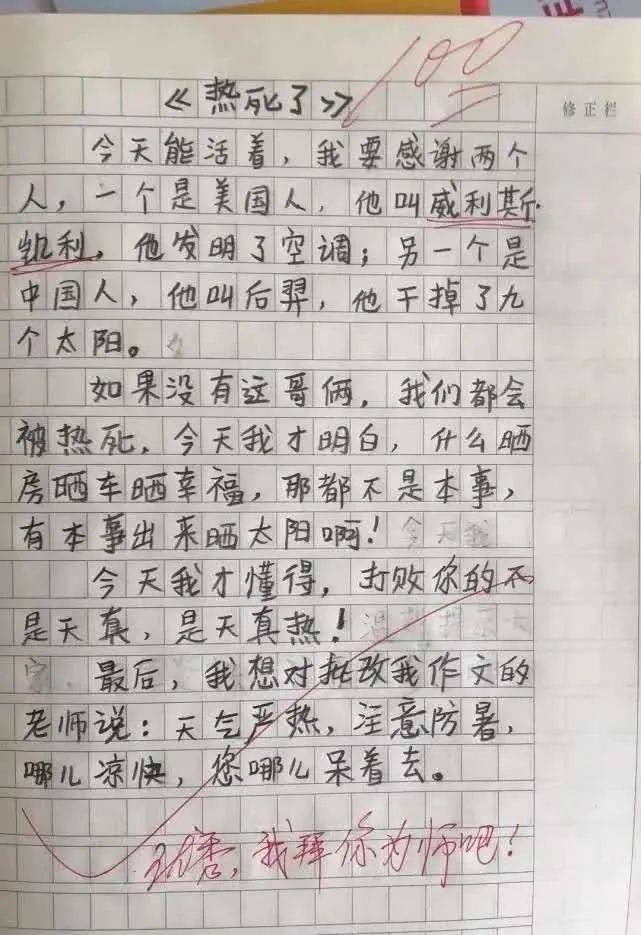 100
《热死了》
修正栏
今天能活着，我要感谢两个
人，一个是美国人，他叫威利斯·
凯利，他发明了空调；另一个是
中国人，他叫后羿，他干掉了九
个太阳。
如果没有这哥俩，我们都会
被热死，今天我才明白，什么晒
房晒车晒幸福，那都不是本事，
有本事出来晒太阳啊！
今天我才懂得，打败你的不
是天真，是天真热！
最后，我想对批改我作文的
老师说：天气严热，注意防暑，
哪儿凉快，您哪儿呆着去。
我拜你为师吧！